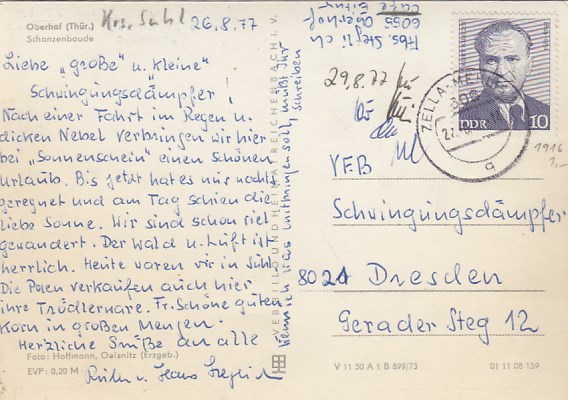 Oberhof (Thür.)
Schanzenbaude
Krs. Suhl
26.8.77
Liebe „große" u. kleine"
Schwingungsdämpfer!
Nach einer Fahrt im Regen u.
dicken Nebel verbringen wir hier
bei „Sonnenschein" einen schönen
Urlaub. Bis jetzt hat es nur nachts
geregnet und am Tag schien die
liebe Sonne. Wir sind schon viel
gewandert. Der Wald u. Luft ist
herrlich. Heute waren wir in Suhl
Die Polen verkaufen auch hier
ihre Trödlerware. Fr. Schöne guten
Korn in großen Mengen.
Herzliche Grüße an alle
Foto: Hoffmann, Oelsnitz (Erzgeb.)
EVP: 0,20 M
Wenn ich was mitbringen soll, müßt Ihr
schreiben
VEB BILD UND HEIMAT REICHENBACH I. V.
Abs. Steglich
6055 Oberhof
29.8.77
DDR
10
ZELLA-MEHLIS
1916
1,-
VEB
Schwingungsdämpfer
8021 Dresden
Gerader Steg 12
V 11 50 A 1/B 899/73
01 11 08 159